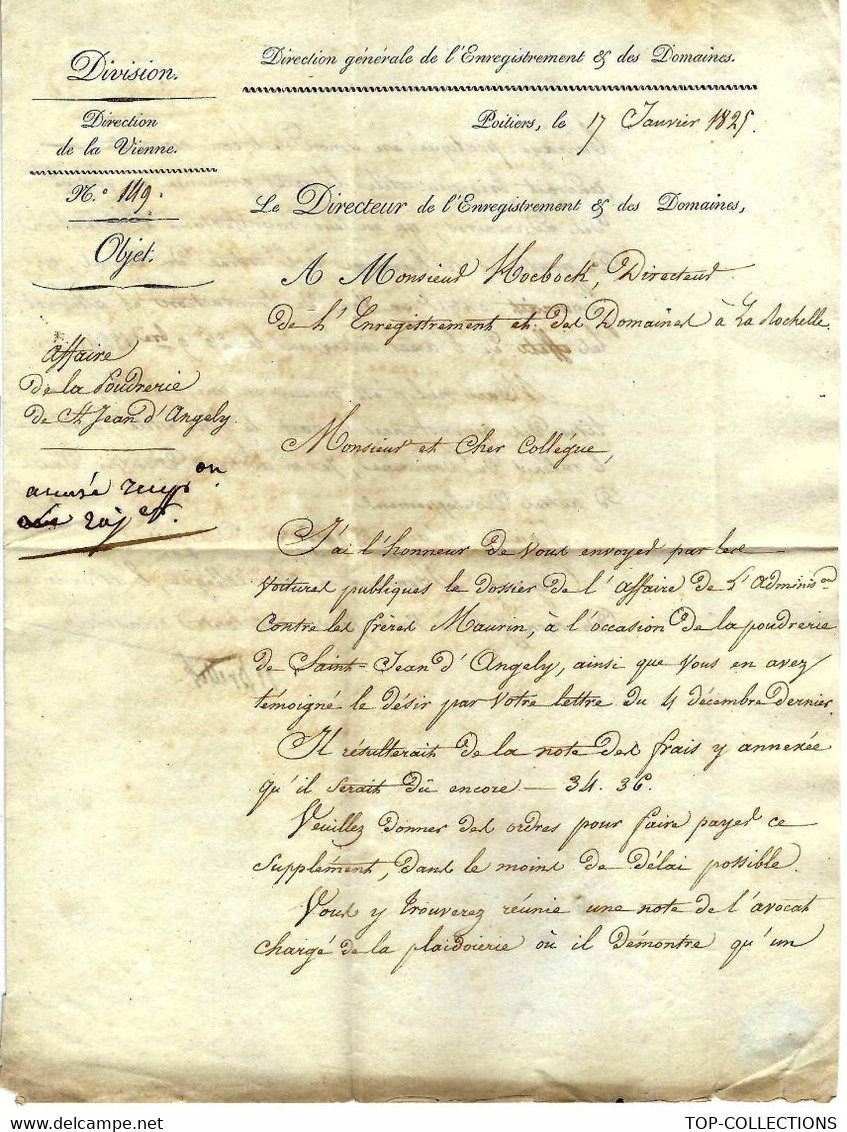 Direction générale de l'Enregistrement & des Domaines.
Division.
Direction
de la Vienne.
N.º 149.
Objet.
affaire
de la Poudrerie
de St Jean d'Angely.
accusé recep.on
Poitiers, le 17 Janvier 1825.
Le Directeur de l'Enregistrement & des Domaines,
A Monsieur Kocbock, Directeur
de l'Enregistrement et des Domaines à La Rochelle
Monsieur et Cher Collégue,
J'ai l'honneur de vous envoyer par les
voitures publiques le dossier de l'affaire de l'Adminis.on
contre les frères Maurin, à l'occasion de la poudrerie
de Saint-Jean d'Angely, ainsi que vous en avez
témoigné le désir par votre lettre du 4 décembre dernier
Il résulterait de la note des frais y annexée
qu'il serait dû encore — 34. 36.
Veuillez donner des ordres pour faire payer ce
supplément, dans le moins de délai possible.
Vous y trouverez réunie une note de l'avocat
chargé de la plaidoierie où il démontre qu'un
TOP-COLLECTIONS